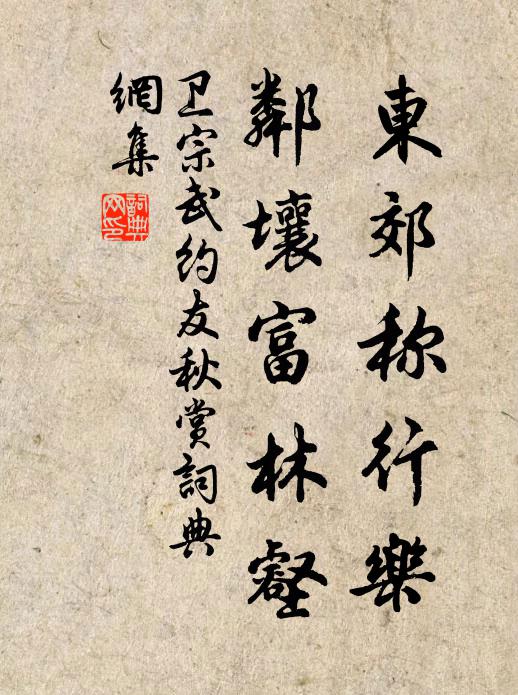 東郊称行樂
鄰壤富林壑
卫宗武约友秋赏詞典
網集
詞典
网印